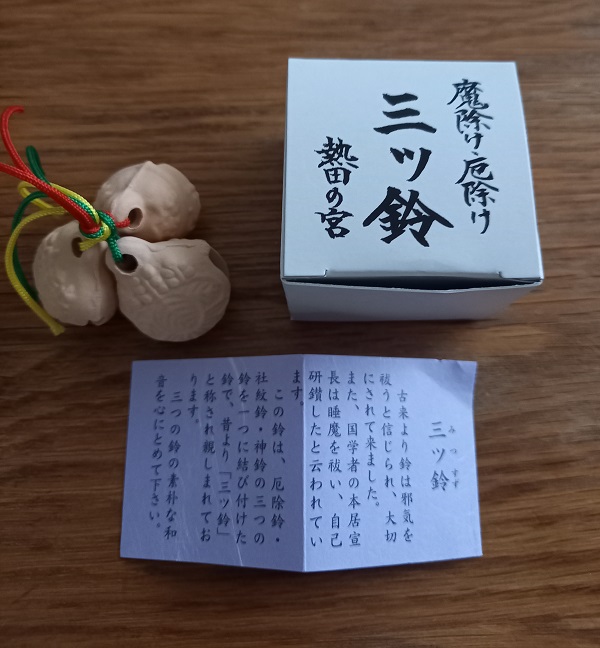 魔除け・厄除け
三ツ鈴
熱田の宮
三ツ鈴
みつすず
古来より鈴は邪気を
祓うと信じられ、大切
にされて来ました。
また、国学者の本居宣
長は睡魔を祓い、自己
研鑽したと云われてい
ます。
この鈴は、厄除鈴・
社紋鈴・神鈴の三つの
鈴を一つに結び付けた
鈴で、昔より「三ツ鈴」
と称され親しまれてお
ります。
三つの鈴の素朴な和
音を心にとめて下さい。